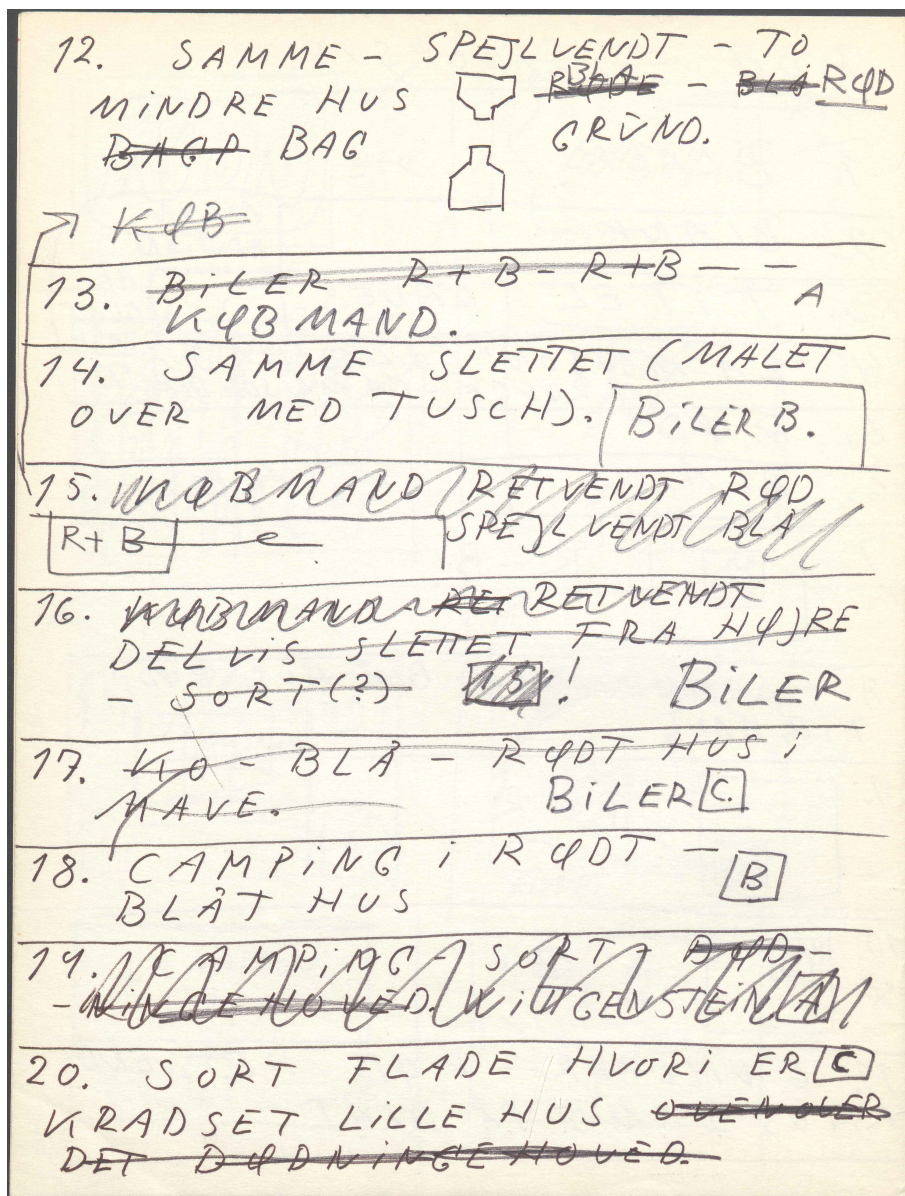 12. SAMME - SPEJLVENDT - TO
MINDRE HUS BLÅ RØDE - BLÅ RØD
BAGP BAG GRUND.
KØB
13. BILER R + B - R + B - -
KØBMAND. A
14. SAMME SLETTET (MALET
OVER MED TUSCH). BILER B.
15. KØBMAND RETVENDT RØD
R + B SPEJLVENDT BLÅ
16. KØBMAND RET RETVENDT
DELVIS SLETTET FRA HØJRE
- SORT (?) 15! BILER
17. KO - BLÅ - RØDT HUS i
MAVE. BILER C.
18. CAMPING i RØDT -
BLÅT HUS B
19. CAMPING - SORT - DØD-
-NINGEHOVED. WITTGENSTEIN A
20. SORT FLADE HVORI ER C
KRADSET LILLE HUS OVENOVER
DET DØDNINGEHOVED.